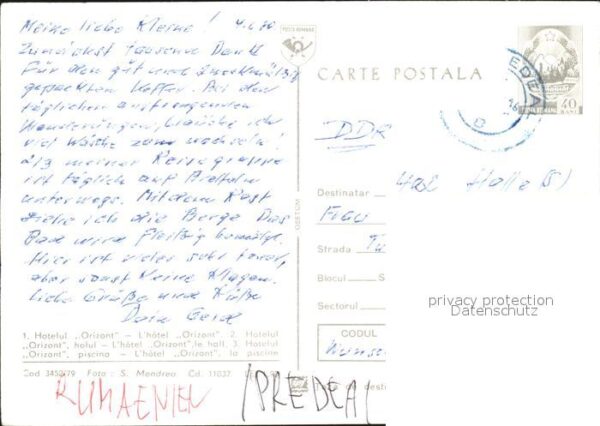 Meine liebe Kleine! 4.6.80
Zunächst tausend Dank
für den gut und zweckmäßig
gepackten Koffer. Bei den
täglichen anstrengenden
Wanderungen, brauche ich
viel Wäsche zum wechseln!
2/3 meiner Reisegruppe
ist täglich auf
unterwegs. Mit dem Rest
ziehe ich die Berge. Das
Bad wird fleißig benutzt.
Hier ist vieles sehr
aber sonst keine Klagen.
Liebe Grüße und Küße
Dein Gerd
1. Hotelul „Orizont" – L'hôtel „Orizont". 2. Hotelul
„Orizont", holul – L'hôtel „Orizont", le hall. 3. Hotelul
„Orizont", piscina – L'hôtel „Orizont", la piscine
Cod 3452/79 Foto: S. Mendrea. Cd. 11037.
RUMAENIEN /PREDEAL
POȘTA ROMÂNĂ
CARTE POSTALA
POSTA ROMANA 40 BANI
PREDEAL
DDR
402 Halle (S)
Destinatar
Frau
Strada
Blocul
Sectorul
CODUL
privacy protection
Datenschutz